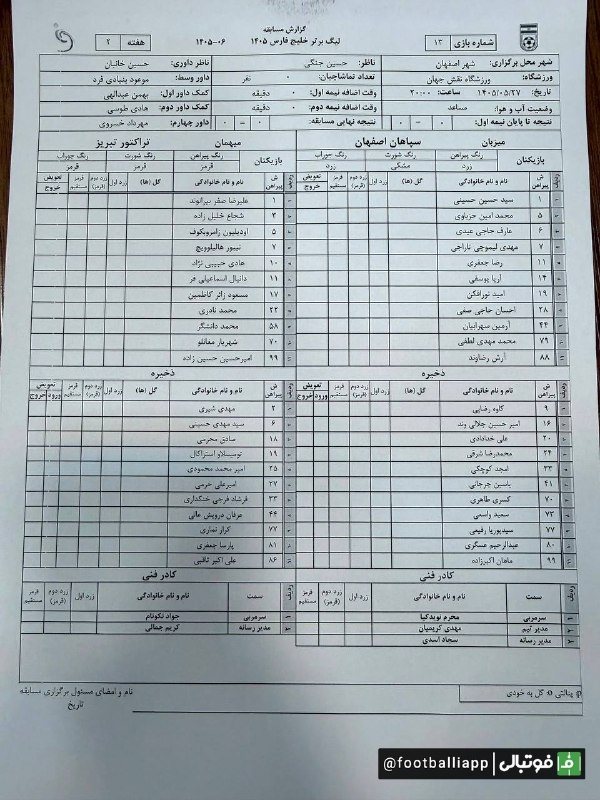 گزارش مسابقه
لیگ برتر خلیج فارس ۱۴۰۵
۱۴۰۵-۰۶
شماره بازی ۱۳
هفته ۲
شهر محل برگزاری: شهر اصفهان
ناظر: حسین جنگی
ناظر داوری: حسین خانبان
ورزشگاه: ورزشگاه نقش جهان
تعداد تماشاچیان: ۰ نفر
داور وسط: موعود بنیادی فرد
تاریخ: ۱۴۰۵/۰۵/۲۷ ساعت: ۲۰:۰۰
وقت اضافه نیمه اول: ۰ دقیقه
کمک داور اول: بهمن عبدالهی
وضعیت آب و هوا: مساعد
وقت اضافه نیمه دوم: ۰ دقیقه
کمک داور دوم: هادی طوسی
نتیجه تا پایان نیمه اول: ۰ - ۰
نتیجه نهایی مسابقه: ۰ - ۰
داور چهارم: مهرداد خسروی
میزبان سپاهان اصفهان
میهمان تراکتور تبریز
بازیکنان رنگ پیراهن رنگ شورت رنگ جوراب
زرد مشکی زرد
بازیکنان رنگ پیراهن رنگ شورت رنگ جوراب
قرمز قرمز قرمز
ردیف ش پیراهن نام و نام خانوادگی گل (ها) زرد اول زرد دوم (قرمز) قرمز مستقیم تعویض خروج
۱ سید حسین حسینی
۵ محمد امین حزباوی
۶ عارف حاجی عیدی
۷ مهدی لیموچی تاراجی
۱۱ رضا جعفری
۱۴ آریا یوسفی
۱۹ امید نورافکن
۲۸ احسان حاجی صفی
۴۴ آرمین سهرابیان
۷۹ محمد مهدی لطفی
۸۸ آرش رضاوند
ردیف ش پیراهن نام و نام خانوادگی گل (ها) زرد اول زرد دوم (قرمز) قرمز مستقیم تعویض خروج
۱ علیرضا صفر بیرانوند
۳ شجاع خلیل زاده
۵ اودیلیون زامروبکوف
۷ تیبور هالیلوویچ
۱۰ هادی حبیبی نژاد
۱۱ دانیال اسماعیلی فر
۱۷ مسعود زائر کاظمین
۲۲ محمد نادری
۵۸ محمد دانشگر
۷۰ شهریار مغانلو
۹۹ امیرحسین حسین زاده
ذخیره
ردیف ش پیراهن نام و نام خانوادگی گل (ها) زرد اول زرد دوم (قرمز) قرمز مستقیم تعویض ورود خروج
۹ کاوه رضایی
۱۶ امیر حسین جلالی وند
۲۰ علی خدادادی
۲۴ محمدرضا شرقی
۳۳ امجد کوچکی
۴۱ یاسین جرجانی
۷۰ کسری طاهری
۷۳ سعید واسعی
۷۷ سیدپوریا رفیعی
۸۰ عبدالرحیم عسگری
۹۹ ماهان اکبرزاده
ذخیره
ردیف ش پیراهن نام و نام خانوادگی گل (ها) زرد اول زرد دوم (قرمز) قرمز مستقیم تعویض ورود خروج
۲ مهدی شیری
۶ سید مهدی حسینی
۱۸ صادق محرمی
۱۹ تومیسلاو استراکال
۲۵ امیر محمد محمودی
۲۷ امیرعلی خرمی
۳۳ فرشاد فرجی خنگداری
۴۴ عرفان درویش عالی
۷۷ کرار نماری
۸۱ پارسا جعفری
۸۶ علی اکبر ثاقبی
کادر فنی
ردیف سمت نام و نام خانوادگی زرد اول زرد دوم (قرمز) قرمز مستقیم
۱ سرمربی محرم نویدکیا
۲ مدیر تیم مهدی کریمیان
مدیر رسانه سجاد اسدی
کادر فنی
ردیف سمت نام و نام خانوادگی زرد اول زرد دوم (قرمز) قرمز مستقیم
۱ سرمربی جواد نکونام
۲ مدیر رسانه کریم جمالی
پنالتی گل به خودی
نام و امضای مسئول برگزاری مسابقه
تاریخ
@footballiapp | فوتبالی